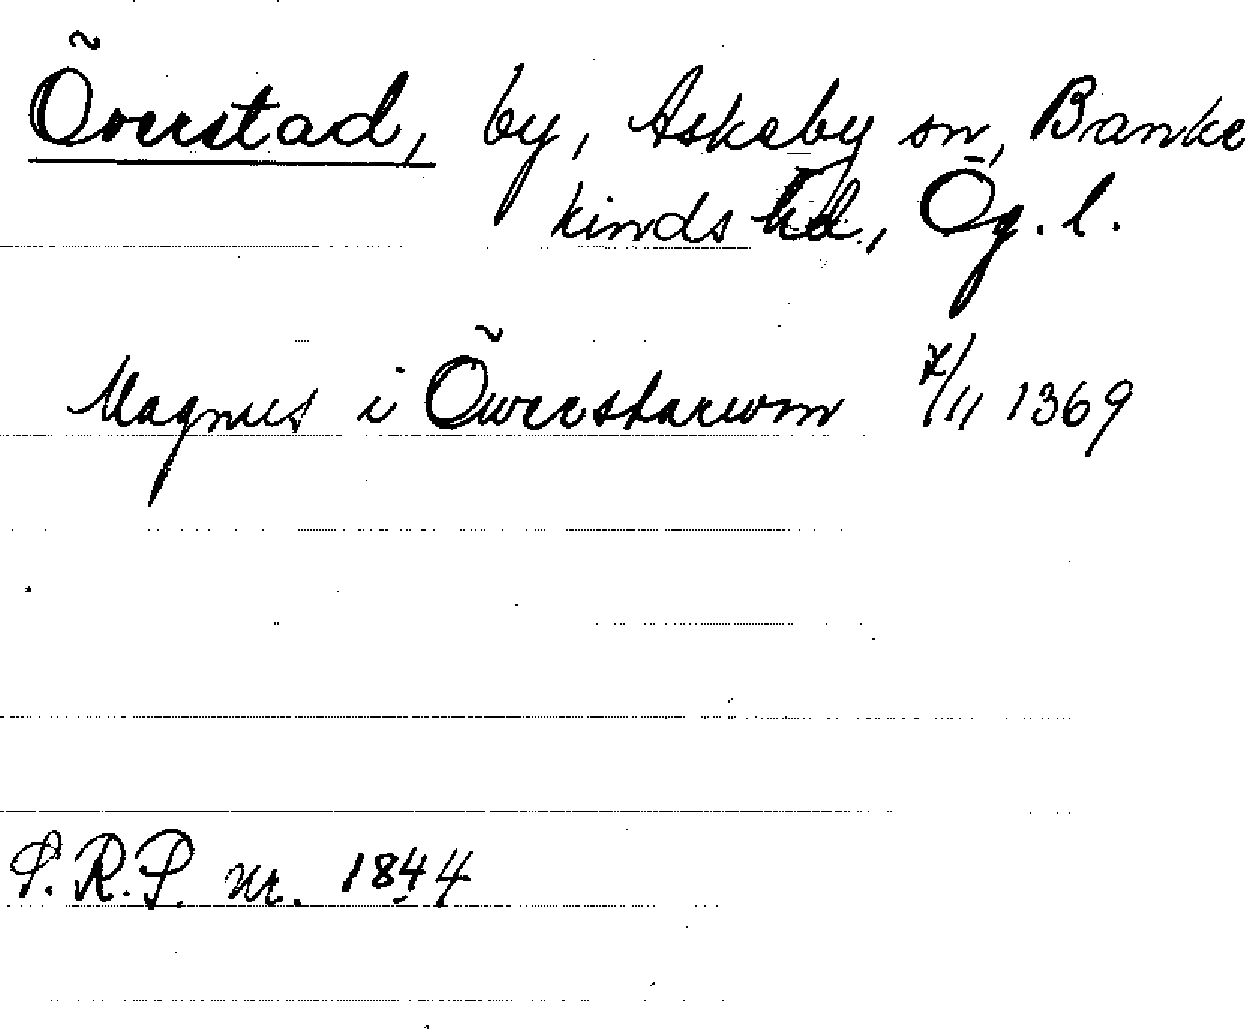 Överstad, by, Askeby sn, Banke
kinds hd., Ög. l.
Magnus i Öwerstarum 7/11 1369
S.R.P. nr. 1844